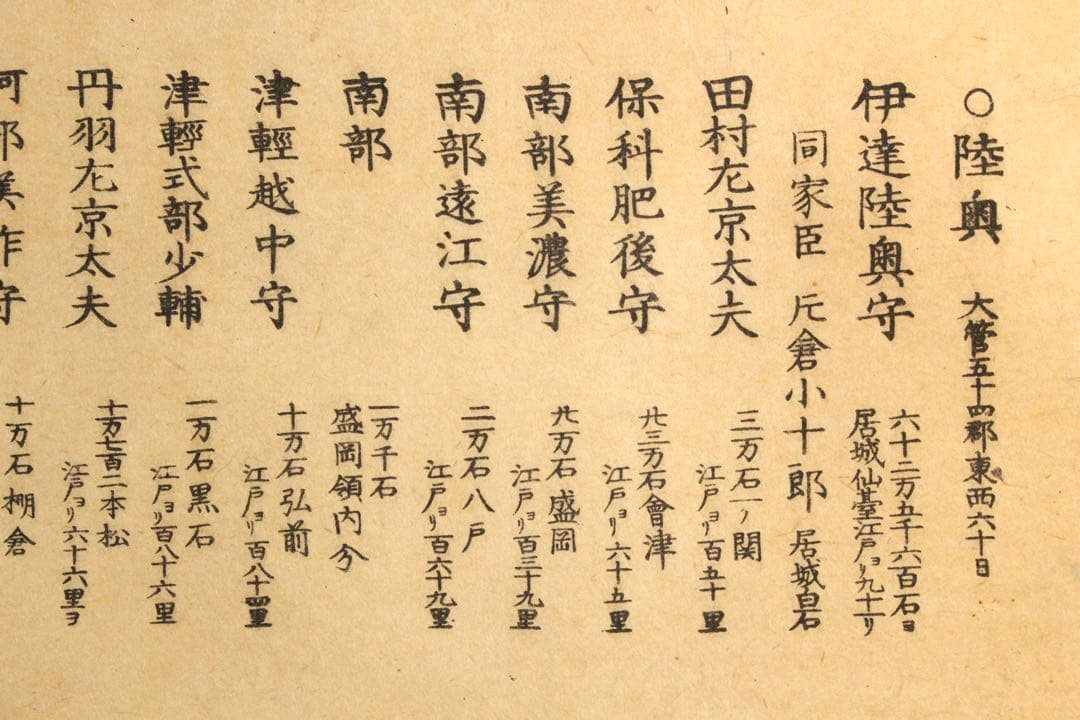 ○陸奥 大管五十四郡東西六十日
伊達陸奥守 六十二万五千六百石ヨ
居城仙臺江戸ヨリ九十一リ
同家臣 片倉小十郎 居城白石
田村左京太夫 三万石一ノ関
江戸ヨリ百五十里
保科肥後守 廿三万石會津
江戸ヨリ六十五里
南部美濃守 廿万石盛岡
江戸ヨリ百三十九里
南部遠江守 二万石八戸
江戸ヨリ百六十九里
南部 一万千石
盛岡領内分
津輕越中守 十万石弘前
江戸ヨリ百八十四里
津輕式部少輔 一万石黒石
江戸ヨリ百八十六里
丹羽左京太夫 十万七百二本松
江戸ヨリ六十六里ヨ
阿部美作守 十万石棚倉